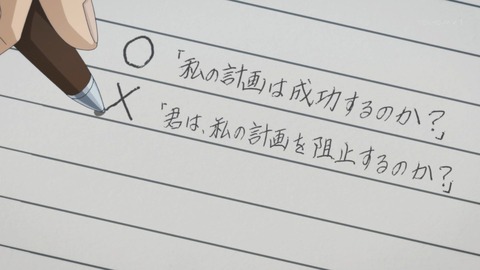 ○「私の計画は成功するのか?」
×「君は、私の計画を阻止するのか?」